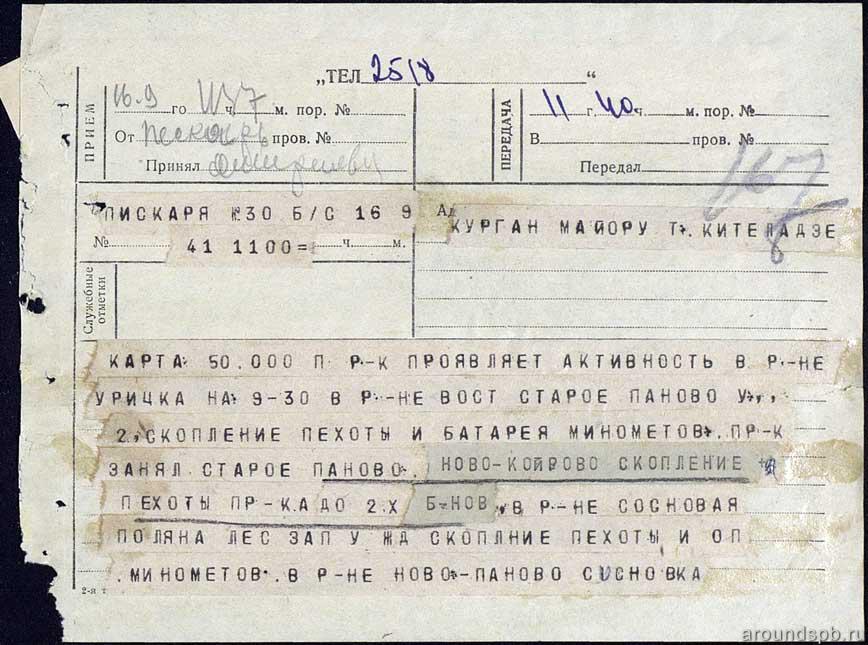 „ТЕЛ 25/8 “
ПРИЕМ
16.9 го ч. м. пор. №
От пескарь пров. №
Принял
ПЕРЕДАЧА
11 г. 40 ч. м. пор. №
В пров. №
Передал
167
8
ПИСКАРЯ №30 Б/С 16 9
№ 41 1100= ч. м.
Ад
КУРГАН МАЙОРУ Т. КИТЕЛАДЗЕ
Служебные отметки
КАРТА 50.000 П Р-К ПРОЯВЛЯЕТ АКТИВНОСТЬ В Р-НЕ
УРИЦКА НА 9-30 В Р-НЕ ВОСТ СТАРОЕ ПАНОВО У,,
2, СКОПЛЕНИЕ ПЕХОТЫ И БАТАРЕЯ МИНОМЕТОВ. ПР-К
ЗАНЯЛ СТАРОЕ ПАНОВО. НОВО-КОЙРОВО СКОПЛЕНИЕ
ПЕХОТЫ ПР-КА ДО 2Х Б-НОВ, В Р-НЕ СОСНОВАЯ
ПОЛЯНА ЛЕС ЗАП У ЖД СКОПЛНИЕ ПЕХОТЫ И ОП
.МИНОМЕТОВ.В Р-НЕ НОВО-ПАНОВО СОСНОВКА
2-я т
aroundspb.ru